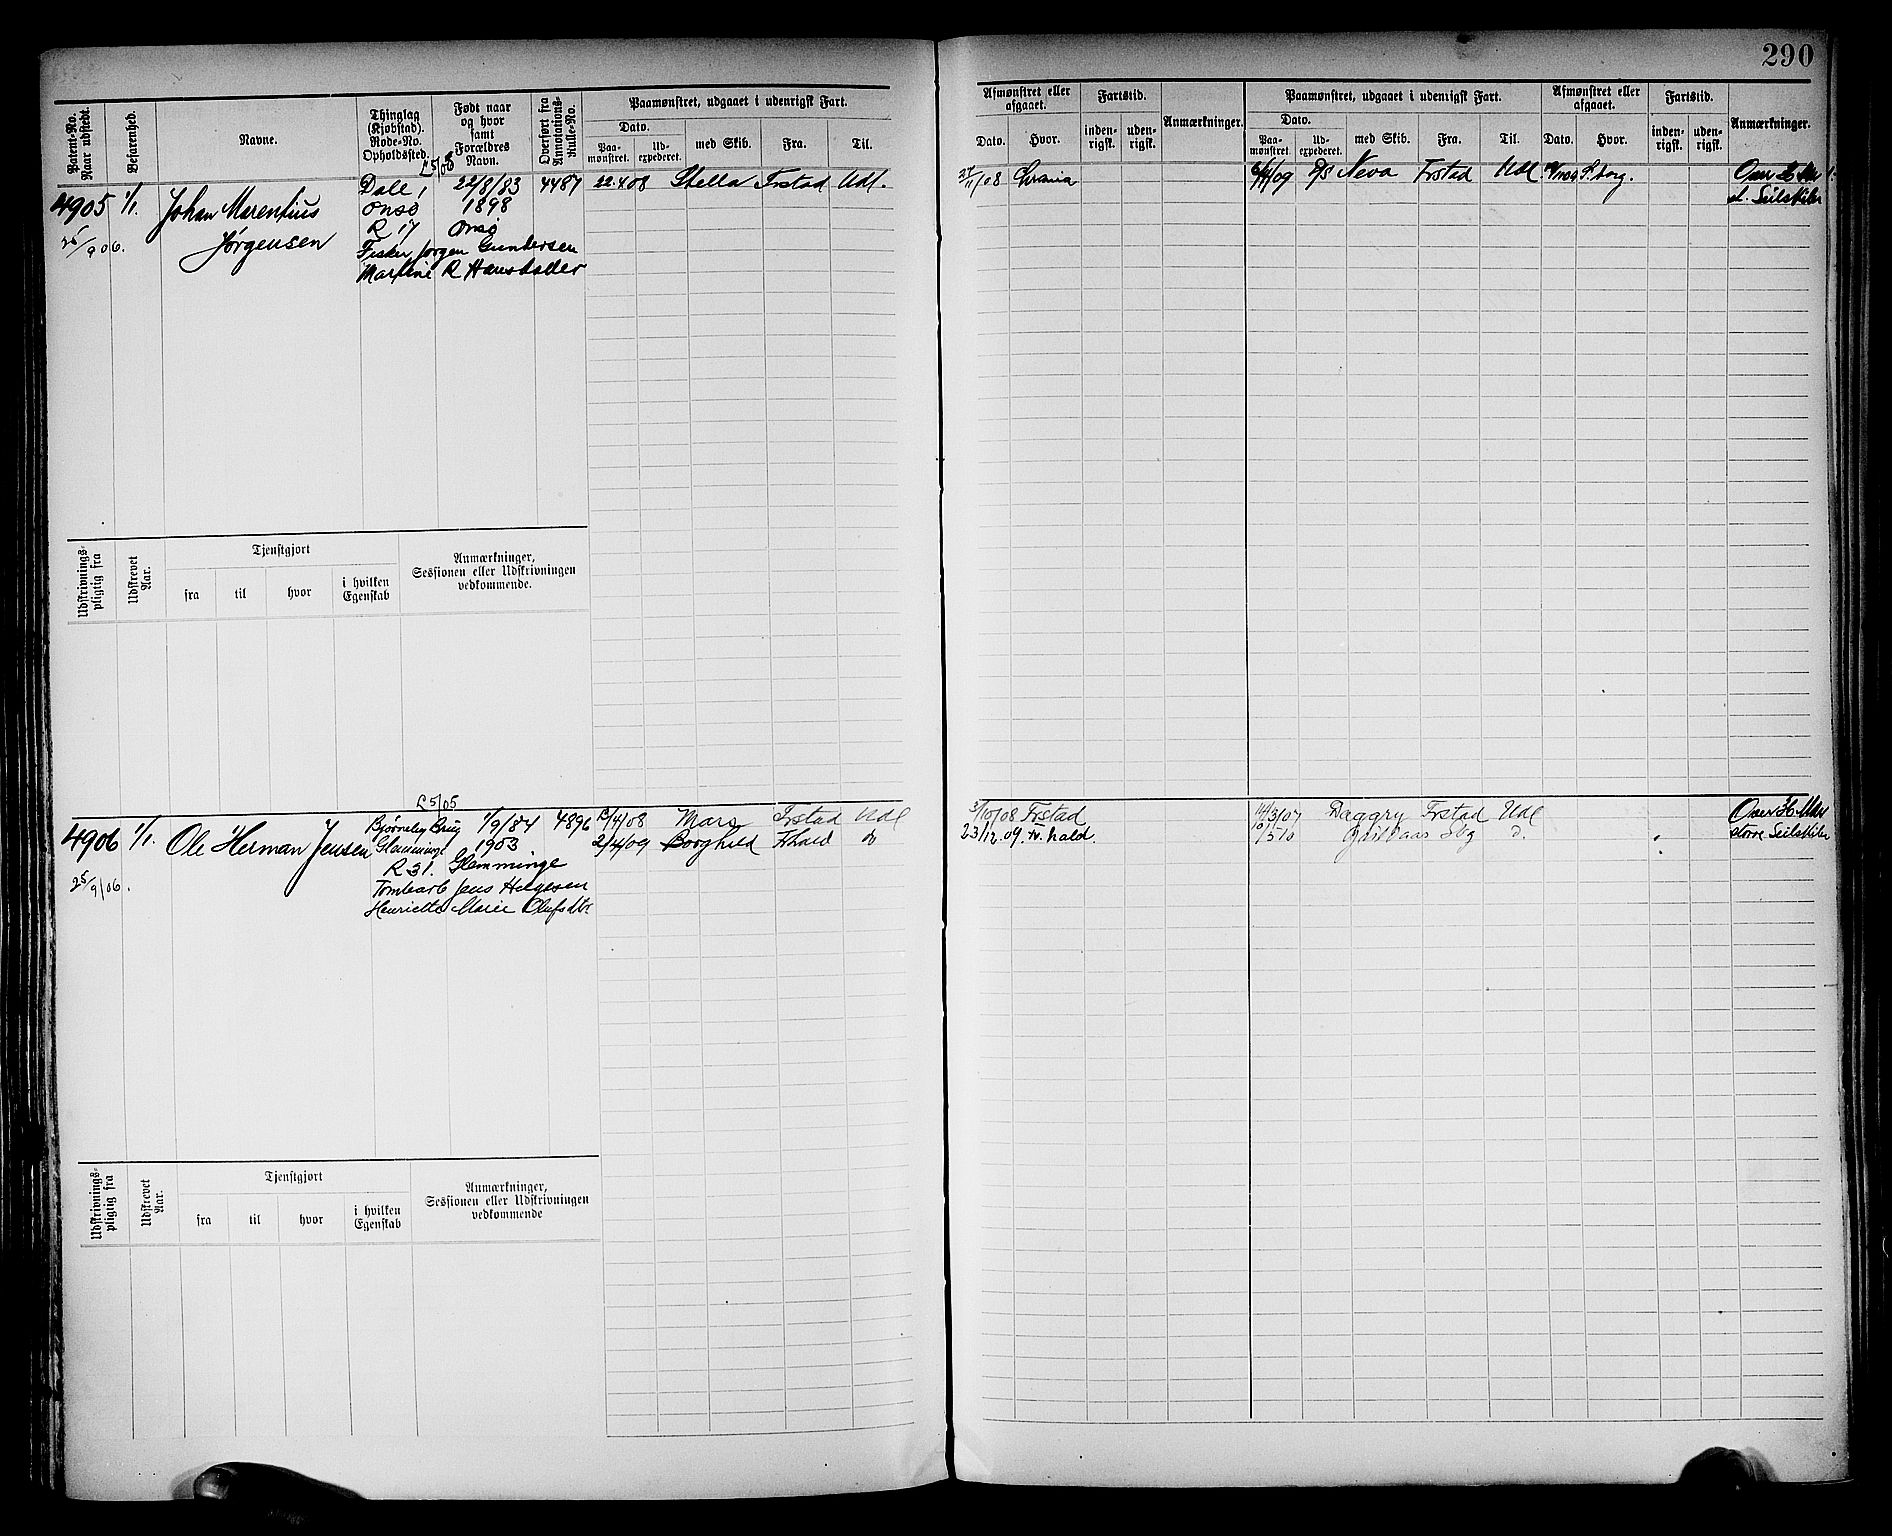 290
Patent-No. Naar udstedt.
Befarenhed.
Navne.
Thinglag (Kjøbstad). Rode-No. Opholdssted.
Født naar og hvor samt Forældres Navn.
Overført fra Annotations-Rulle-No.
Paamønstret, udgaaet i udenrigsk Fart.
Dato.
Paa-mønstret. Ud-expederet.
med Skib. Fra. Til.
Afmønstret eller afgaaet.
Dato. Hvor.
Fartstid.
inden-rigsk. uden-rigsk.
Anmærkninger.
Paamønstret, udgaaet i udenrigsk Fart.
Dato.
Paa-mønstret. Ud-expederet.
med Skib. Fra. Til.
Afmønstret eller afgaaet.
Dato. Hvor.
Fartstid.
inden-rigsk. uden-rigsk.
Anmærkninger.
4905 1/1. Johan Marentius Dale, 22/8/83 4487 22.4.08 Stella Frstad Udl.
Jørgensen Onsø 1898
25/9 06. R 17 Onsø
Fisker Jørgen Gundersen
Martine R Hansdatter
/11/08 /09 D/S Neva Frstad Udl S.borg.
st. Seilskibe
Udskrivnings-pligtig fra
Udskrevet Aar.
Tjenstgjort
fra til hvor i hvilken Egenskab
Anmærkninger, Sessionen eller Udskrivningen vedkommende.
L 5/05
4906 1/1. Ole Herman Jensen Bjørneby Brug 1/9/84 4896 /4/08 Mars Frstad Udl
Glemminge 1903 2/4/09 Borghild Fhald do
25/9/06. R 31. Glemminge
Tomtearb Jens Helgesen
Henriette Marie Olufsdtr
3/10/08 Frstad 14/3/07 Daggry Frstad Udl
23/12.09 Fr. hald. /5 10 Sbg D.
større Seilskibe
Udskrivnings-pligtig fra
Udskrevet Aar.
Tjenstgjort
fra til hvor i hvilken Egenskab
Anmærkninger, Sessionen eller Udskrivningen vedkommende